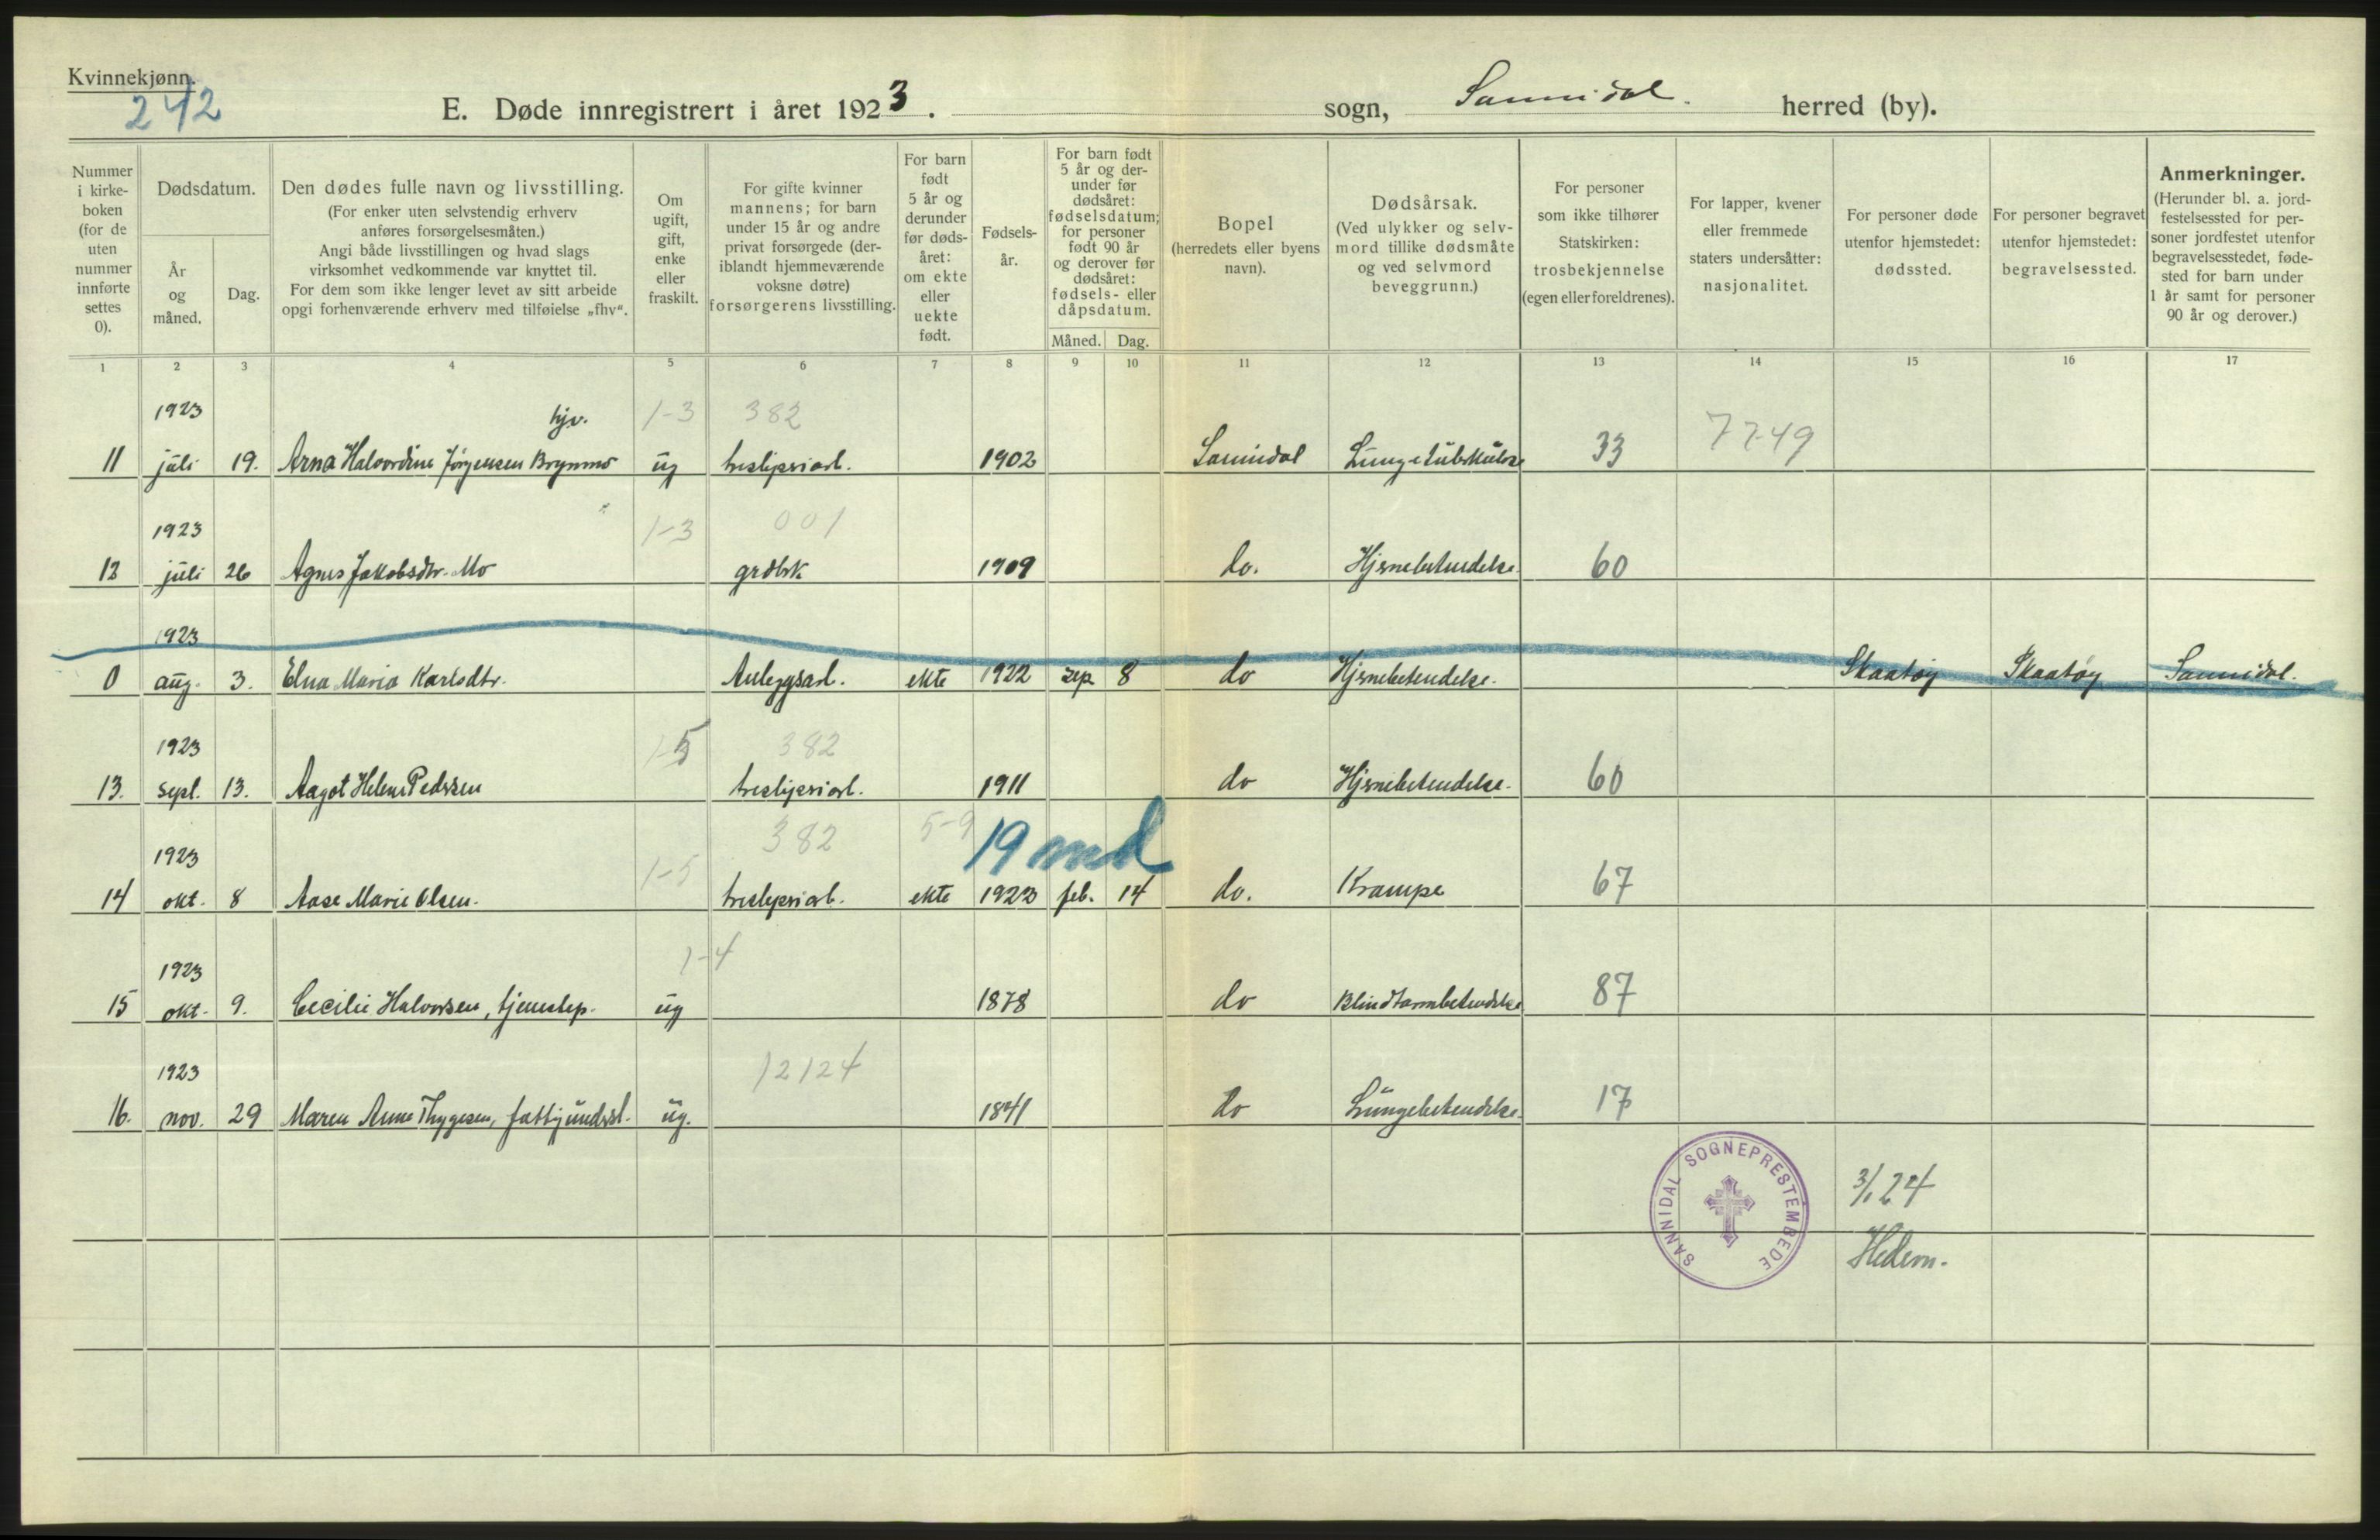 Kvinnekjønn.
242
E. Døde innregistrert i året 1923. sogn, Sannidal. herred (by).
Nummer i kirkeboken (for de uten nummer innførte settes 0).
Dødsdatum.
År og måned.
Dag.
Den dødes fulle navn og livsstilling.
(For enker uten selvstendig erhverv anføres forsørgelsesmåten.)
Angi både livsstillingen og hvad slags virksomhet vedkommende var knyttet til.
For dem som ikke lenger levet av sitt arbeide opgi forhenværende erhverv med tilføielse „fhv“.
Om ugift, gift, enke eller fraskilt.
For gifte kvinner mannens; for barn under 15 år og andre privat forsørgede (deriblandt hjemmeværende voksne døtre) forsørgerens livsstilling.
For barn født 5 år og derunder før dødsåret: om ekte eller uekte født.
Fødselsår.
For barn født 5 år og derunder før dødsåret: fødselsdatum; for personer født 90 år og derover før dødsåret: fødsels- eller dåpsdatum.
Måned. Dag.
Bopel
(herredets eller byens navn).
Dødsårsak.
(Ved ulykker og selvmord tillike dødsmåte og ved selvmord beveggrunn.)
For personer som ikke tilhører Statskirken: trosbekjennelse (egen eller foreldrenes).
For lapper, kvener eller fremmede staters undersåtter: nasjonalitet.
For personer døde utenfor hjemstedet: dødssted.
For personer begravet utenfor hjemstedet: begravelsessted.
Anmerkninger.
(Herunder bl. a. jordfestelsessted for personer jordfestet utenfor begravelsesstedet, fødested for barn under 1 år samt for personer 90 år og derover.)
1 2 3 4 5 6 7 8 9 10 11 12 13 14 15 16 17
1923 hjv. 1-3 382
11 juli 19. Arna Halvordine Jørgensen Brynmo ug tresliperiarb. 1902 Sannidal Lungetuberkulose 33 7749
1923 1-3 001
12 juli 26 Agnes Jakobsdtr. Mo grdbrk 1909 do. Hjernebetendelse 60
1923
0 aug. 3. Elna Maria Karlsdtr. Anleggsarb. ekte 1922 sep 8 do Hjernebetendelse. Skaatøy Skaatøy Sannidal.
1923 1-5 382
13. sept. 13. Aagot Helene Pedersen tresliperiarb. 1911 do Hjernebetendelse. 60
1923 1-5 382 5-9 19 md
14 okt. 8 Aase Marie Olsen. tresliperiarb. ekte 1922 feb. 14 do. Krampe 67
1923 1-4
15 okt. 9. Cecilie Halvorsen, tjenestep. ug 1878 do Blindtarmbetendelse 87
1923 12124
16. nov. 29 Maren Anne Thygesen, fattigunderst. ug. 1841 do Lungebetendelse. 17
SANNIDAL SOGNEPRESTEMBEDE
3/1 24